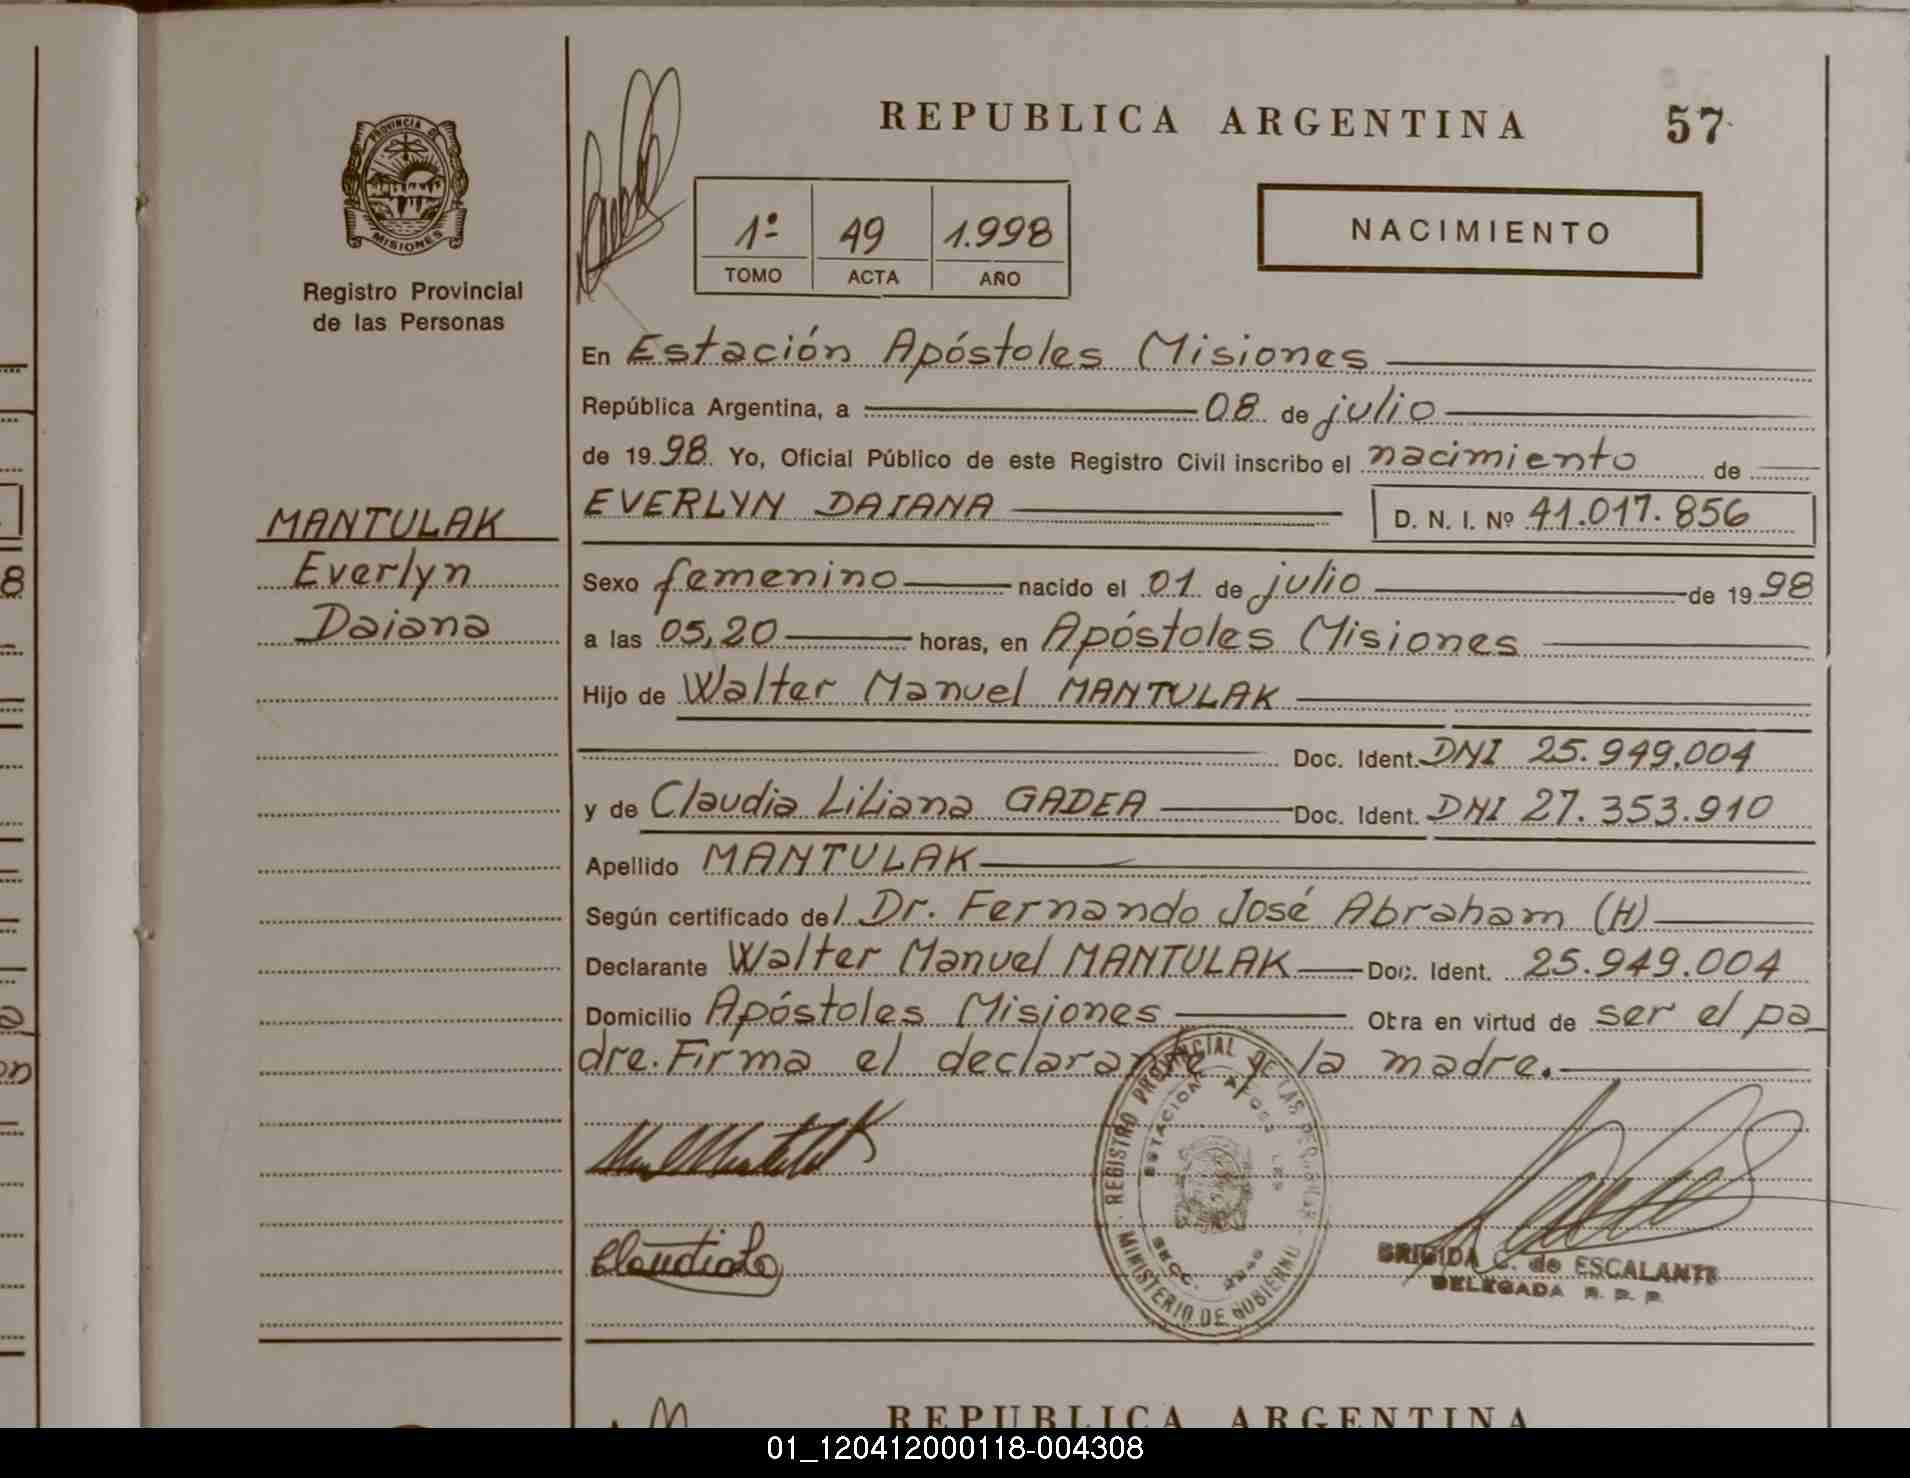 PROVINCIA DE
MISIONES
Registro Provincial
de las Personas
MANTULAK
Everlyn
Daiana
REPUBLICA ARGENTINA 57
1º 49 1.998
TOMO ACTA AÑO
NACIMIENTO
En Estación Apóstoles Misiones
República Argentina, a 08 de julio
de 1998 Yo, Oficial Público de este Registro Civil inscribo el nacimiento de
EVERLYN DAIANA D. N. I. Nº 41.017.856
Sexo femenino nacido el 01 de julio de 1998
a las 05,20 horas, en Apóstoles Misiones
Hijo de Walter Manuel MANTULAK
Doc. Ident. DNI 25.949.004
y de Claudia Liliana GADEA Doc. Ident. DNI 27.353.910
Apellido MANTULAK
Según certificado del Dr. Fernando José Abraham (H)
Declarante Walter Manuel MANTULAK Doc. Ident. 25.949.004
Domicilio Apóstoles Misiones Obra en virtud de ser el pa
dre. Firma el declarante y la madre.
REGISTRO PROVINCIAL DE LAS PERSONAS
ESTACION APOSTOLES
MINISTERIO DE GOBIERNO
BRIGIDA C. de ESCALANTE
DELEGADA R. P. P.
REPUBLICA ARGENTINA
01_120412000118-004308